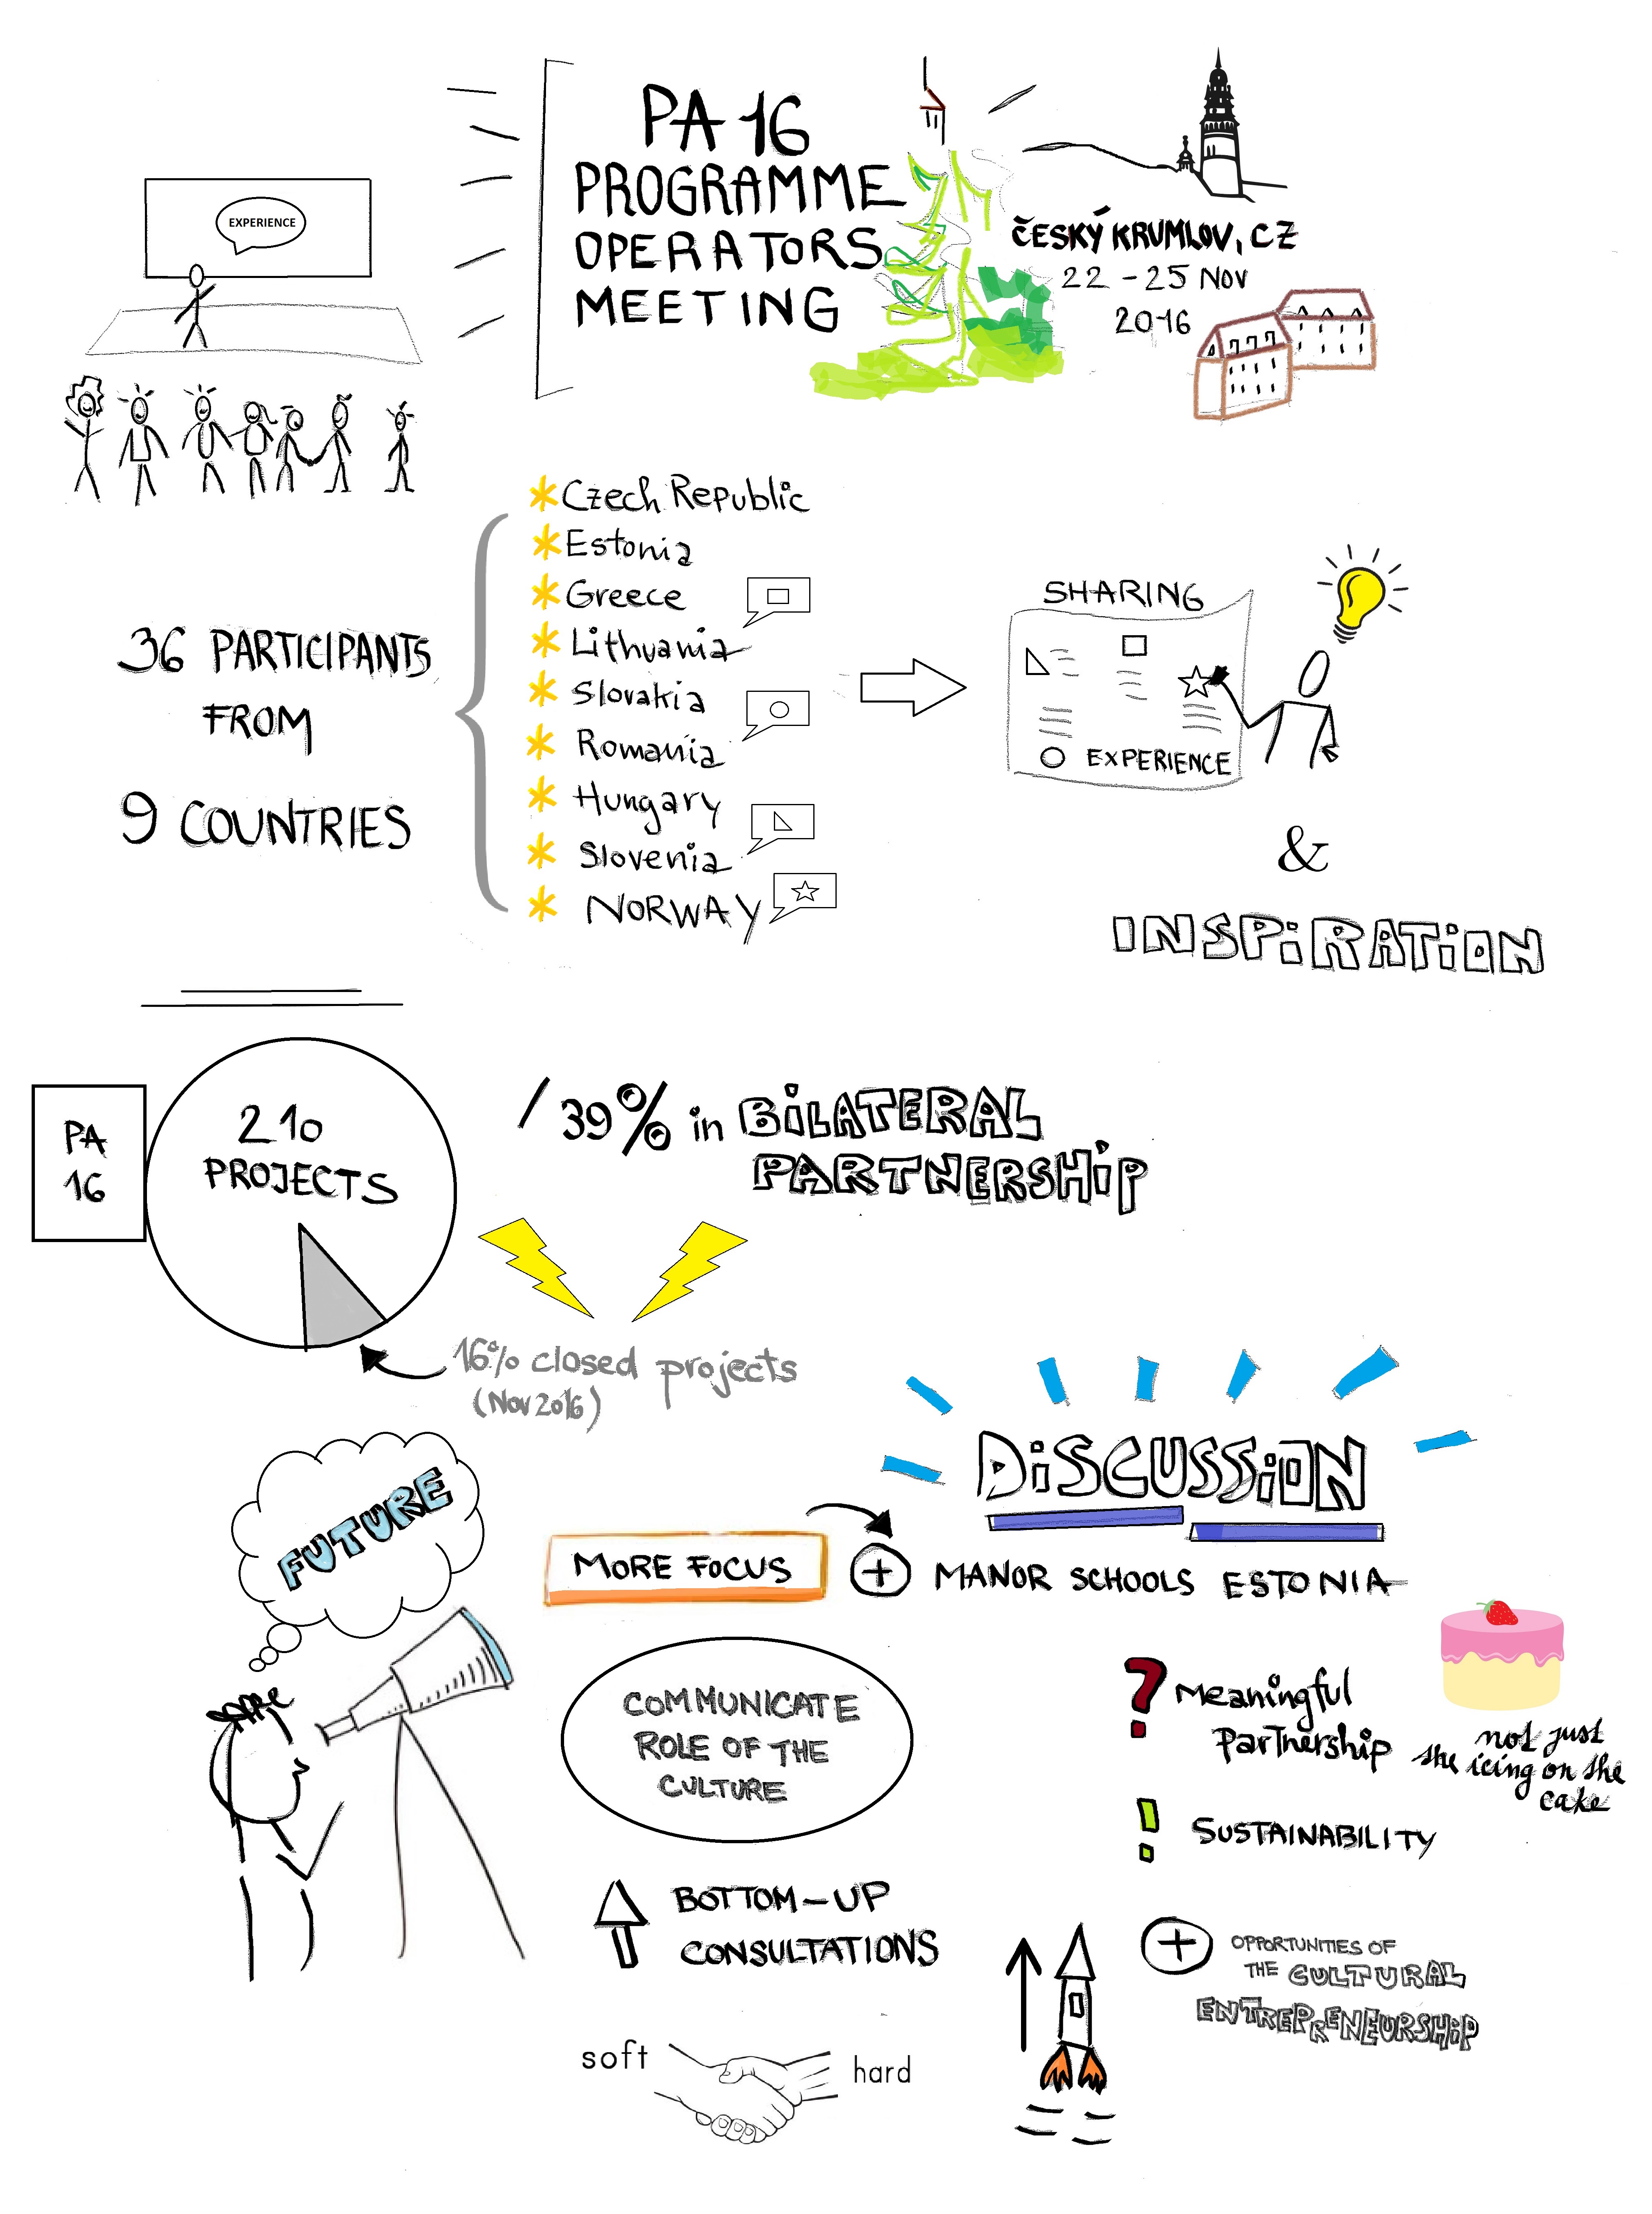 EXPERIENCE
PA 16
PROGRAMME
OPERATORS
MEETING
ČESKÝ KRUMLOV, CZ
22 - 25 NOV
2016
36 PARTICIPANTS
FROM
9 COUNTRIES
Czech Republic
Estonia
Greece
Lithuania
Slovakia
Romania
Hungary
Slovenia
NORWAY
SHARING
EXPERIENCE
&
INSPiRATiON
PA
16
210
PROJECTS
/ 39% in BiLATERAL
PARTNERSHiP
16% closed projects
(Nov 2016)
FUTURE
DiSCUSSiON
MORE FOCUS
+ MANOR SCHOOLS ESTONIA
COMMUNICATE
ROLE OF THE
CULTURE
? Meaningful
Partnership
not just
the icing on the
cake
! SUSTAINABILITY
BOTTOM-UP
CONSULTATIONS
+ OPPORTUNITIES OF
THE CULTURAL
ENTREPRENEURSHiP
soft
hard